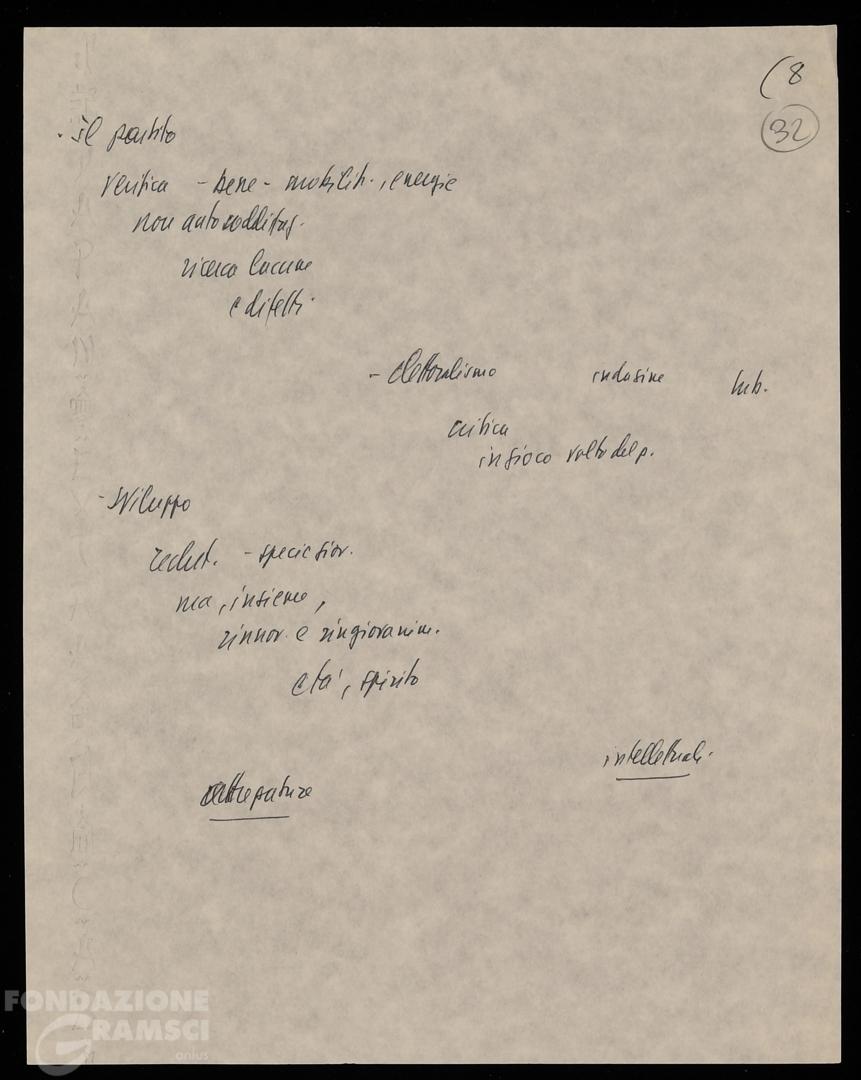 (8
32
- il partito
verifica - bene - mobilit., energie
non autosoddisfaz.
ricerca lacune
e difetti.
- elettoralismo indagine
critica
in gioco volto del p.
- sviluppo
reclut. - specie giov.
ma, insieme,
rinnov. e ringiovanim.
età, spirito
intellettuali.
FONDAZIONE
GRAMSCI
onlus